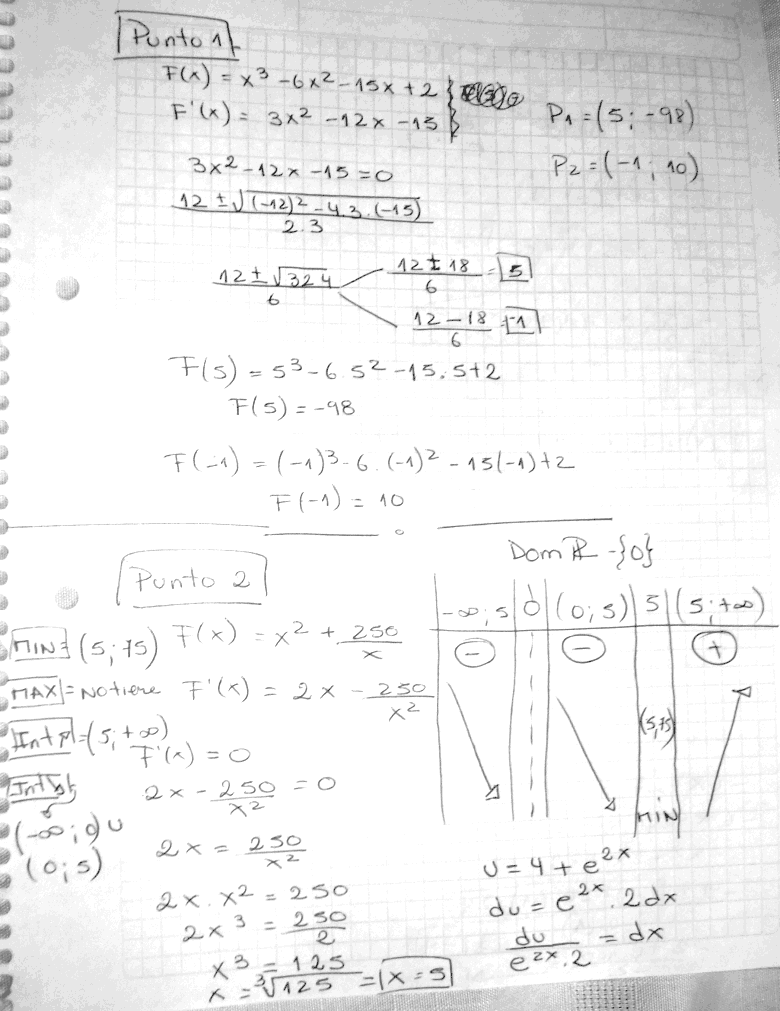 Punto 1
F(x) = x³ - 6x² - 15x + 2
F'(x) = 3x² - 12x - 15
P₁ = (5; -98)
P₂ = (-1; 10)
3x² - 12x - 15 = 0
12 ± √(-12)² - 4.3.(-15)
2.3
12 ± √324
6
12 ± 18
6
= 5
12 - 18
6
= -1
F(5) = 5³ - 6.5² - 15.5 + 2
F(5) = -98
F(-1) = (-1)³ - 6.(-1)² - 15(-1) + 2
F(-1) = 10
Punto 2
MIN = (5; 75)
F(x) = x² + 250/x
MAX = No tiene
F'(x) = 2x - 250/x²
(5; +∞)
F'(x) = 0
(-∞; 0) ∪
(0; 5)
2x - 250/x² = 0
2x = 250/x²
2x . x² = 250
2x³ = 250/2
x³ = 125
x = ³√125 = x = 5
Dom ℝ - {0}
-∞; 5 | 0 | (0; 5) | 5 | (5; +∞)
- - +
(5, 75)
MIN
U = 4 + e²ˣ
du = e²ˣ . 2dx
du/e²ˣ.2 = dx